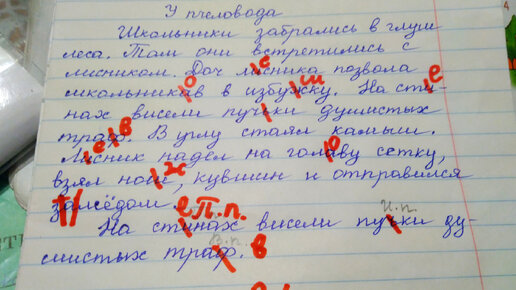 У пчеловода
Школьники забрались в глуш
леса. Там они встретились с
лисником. Доч лисника позвола
школьникав в избушку. На сти-
нах висели пучьки душистых
траф. В углу стаял камыш.
Лисник надел на голаву сетку,
взял нош, кувшин и отправился
замёдом. е П.п.
И.п.
На стинах висели пучьки ду-
В.п.
шистых траф. в